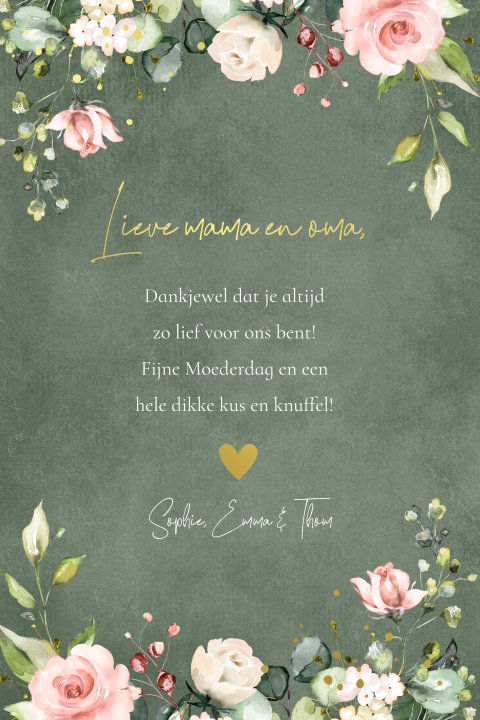 Lieve mama en oma,
Dankjewel dat je altijd
zo lief voor ons bent!
Fijne Moederdag en een
hele dikke kus en knuffel!
Sophie, Emma & Thom